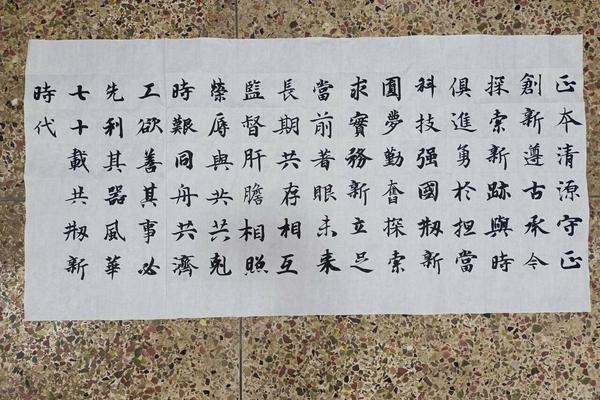 正本清源守正
創新遵古承今
探索新跡與時
俱進勇於担當
科技强國刱新
圓夢勤奮探索
求實務新立足
當前着眼未来
長期共存相互
監督肝膽相照
榮辱與共共剋
時艱同舟共濟
工欲善其事必
先利其器風華
七十載共刱新
時代